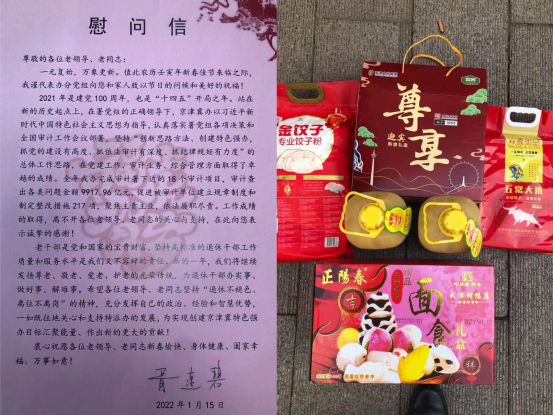 慰 问 信
尊敬的各位老领导、老同志：
一元复始，万象更新。值此农历壬寅年新春佳节来临之际，
我谨代表办分党组向您和家人致以节日的问候和美好的祝福！
2021 年是建党 100 周年，也是“十四五”开局之年。站在
新的历史起点上，在署党组的正确领导下，京津冀办以习近平新
时代中国特色社会主义思想为指导，认真落实署党组各项决策和
全国审计工作会议部署，坚持“创新思路方法、创建特色强办，
抓党的建设有高度、抓依法审计有深度、抓纪律规矩有力度”的
总体工作思路，在党建工作、审计业务、综合管理方面取得了卓
越的成绩。全年我办完成审计署下达的 18 个审计项目，审计查
出各类问题金额 9917.96 亿元，促进被审计单位建立规章制度和
制定整改措施 217 项，聚焦主责主业，依法履职尽责。工作成绩
的取得，离不开各位老领导、老同志的关心与支持，在此向您表
示诚挚的感谢！
老干部是党和国家的宝贵财富，坚持高标准的退休干部工作
质量和服务水平是我们义不容辞的责任。新的一年，我们将继续
发扬尊老、敬老、爱老、护老的光荣传统，为退休干部办实事、
做好事、解难事。希望各位老领导、老同志坚持“退休不褪色，
离位不离岗”的精神，充分发挥自己的政治、经验和智慧优势，
一如既往地关心和支持特派办的发展，为实现创建京津冀特色强
办目标汇聚能量、作出新的更大的贡献！
衷心祝愿各位老领导、老同志新春愉快、身体健康、阖家幸
福、万事如意！
2022 年 1 月 15 日
尊享
迎宾
金饺子
专业饺子粉
五常大米
正陽春
面食
礼盒
吉
祥